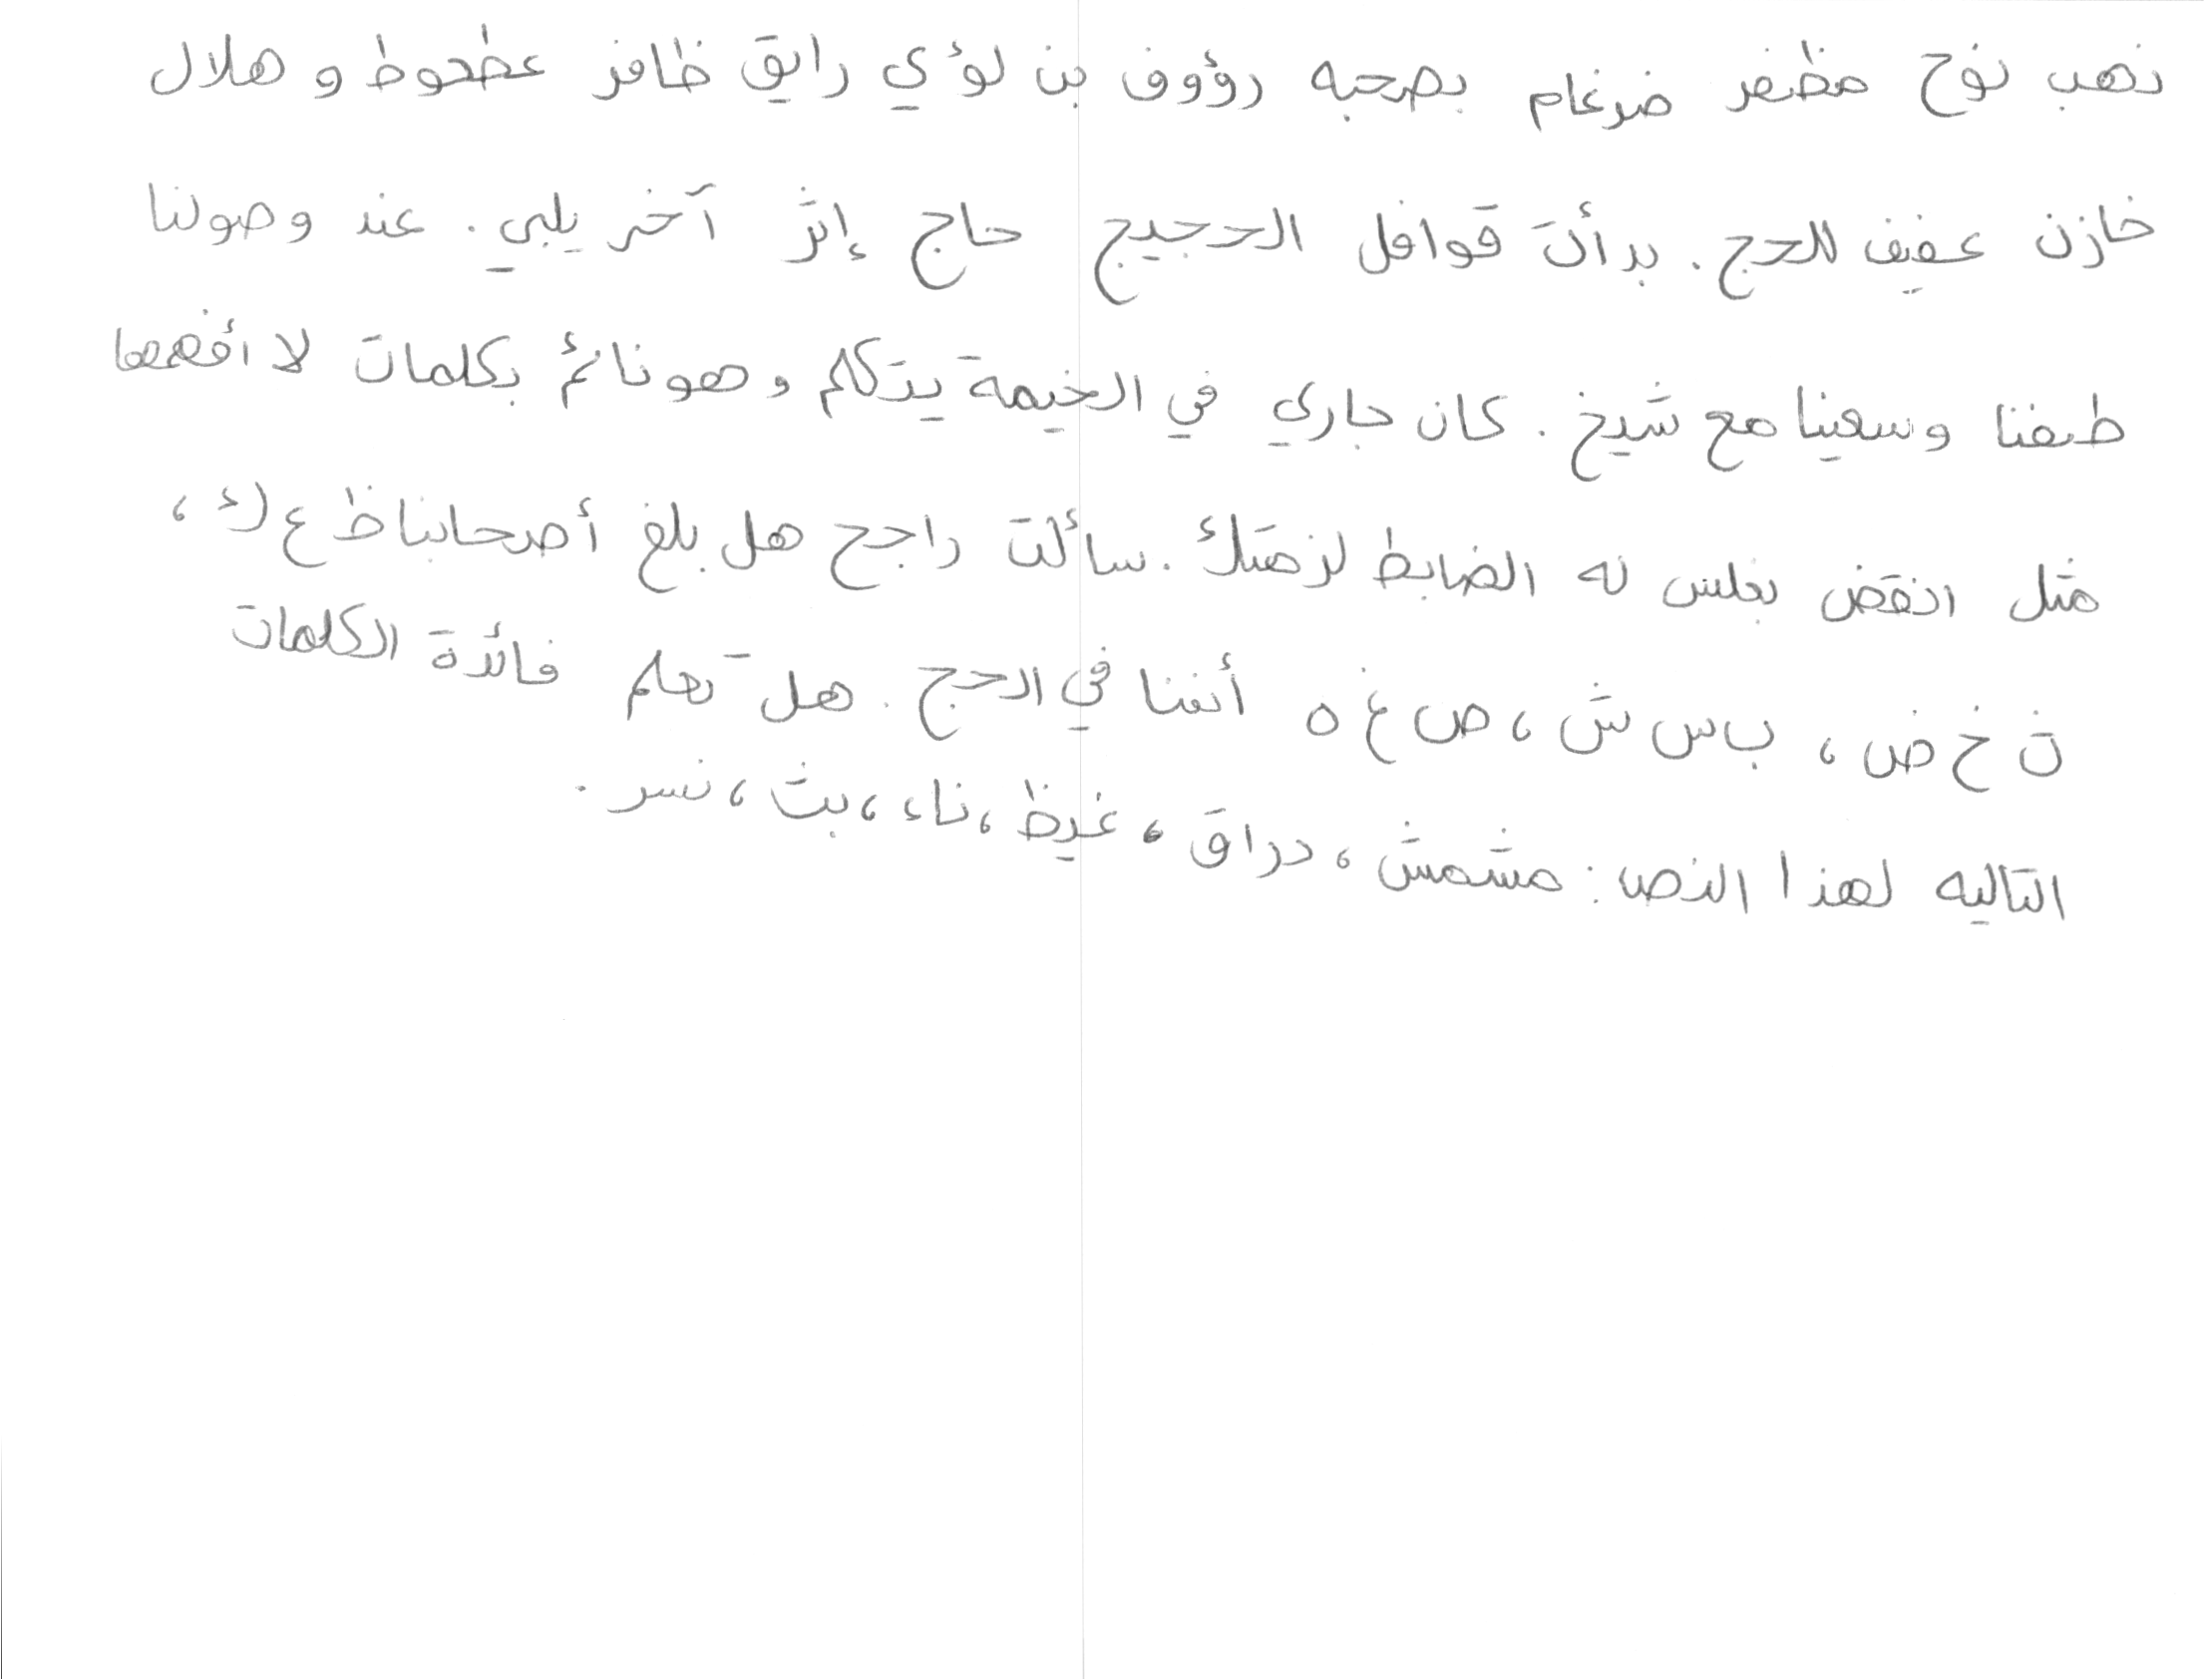 ذهب نوح مظفر ضرغام بصحبه رؤوف بن لؤي رايق ظافر عطعوط و هلال
خازن عفيف للحج. بدأت قوافل الحجيج حاج إثر آخر يلبي. عند وصولنا
طفنا وسعينا مع شيخ. كان جاري في الخيمة يتكلم وهو نائم بكلمات لا أفهمها
مثل انقض بغلس له الضابط لزهتك. سألت راجح هل بلغ أصحابنا ظ ع ك،
ن خ ض، ب س ش، ص غ ه أننا في الحج. هل تعلم فائدة الكلمات
التاليه لهذا النص: مشمش، دراق، غيظ، ناء، بث، نسر.